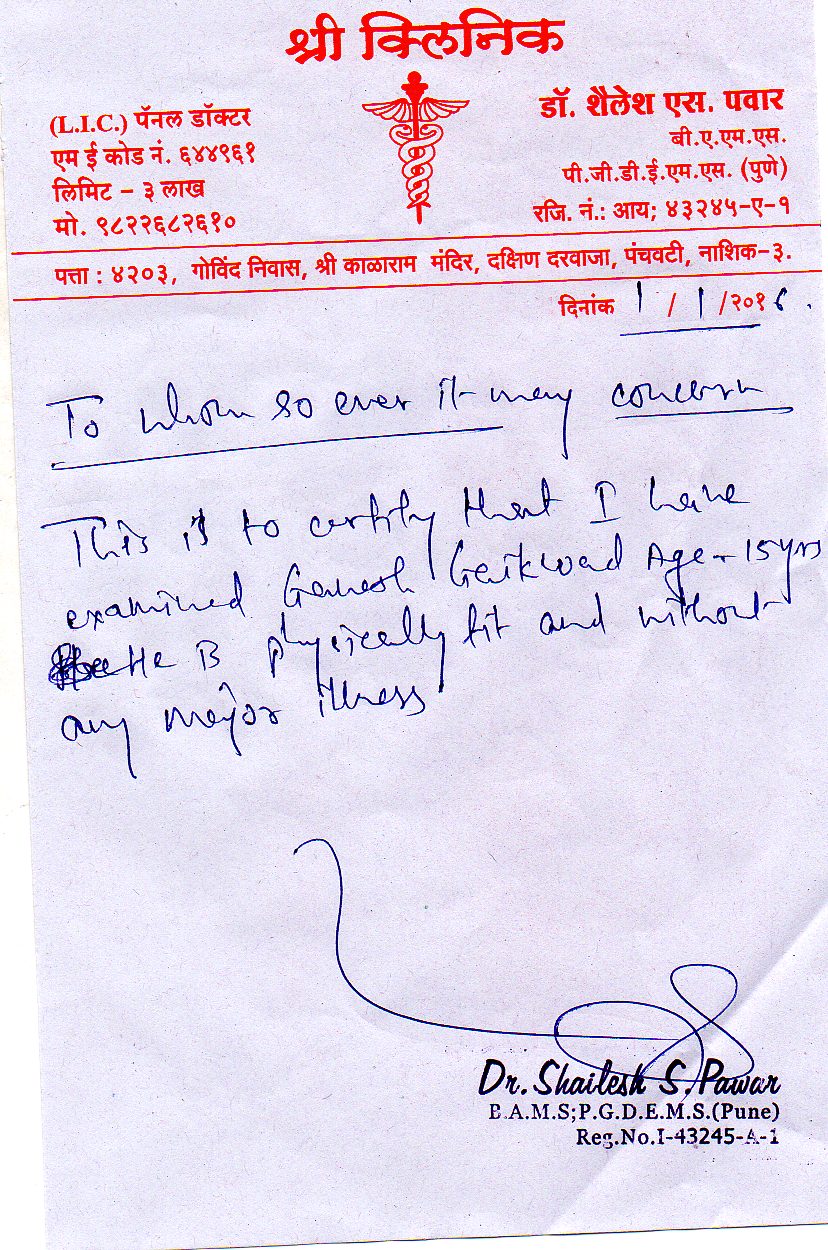 श्री क्लिनिक
(L.I.C.) पॅनल डॉक्टर
एम ई कोड नं. ६४४९६१
लिमिट – ३ लाख
मो. ९८२२६८२६१०
डॉ. शैलेश एस. पवार
बी.ए.एम.एस.
पी.जी.डी.ई.एम.एस. (पुणे)
रजि. नं.: आय; ४३२४५-ए-१
पत्ता : ४२०३, गोविंद निवास, श्री काळाराम मंदिर, दक्षिण दरवाजा, पंचवटी, नाशिक-३.
दिनांक 1 / 1 /२०१६.
To whom so ever it may concern
This is to certify that I have
examined Ganesh Gaikwad Age - 15 yrs
He is physically fit and without
any major illness
Dr. Shailesh S. Pawar
B.A.M.S;P.G.D.E.M.S.(Pune)
Reg.No.I-43245-A-1